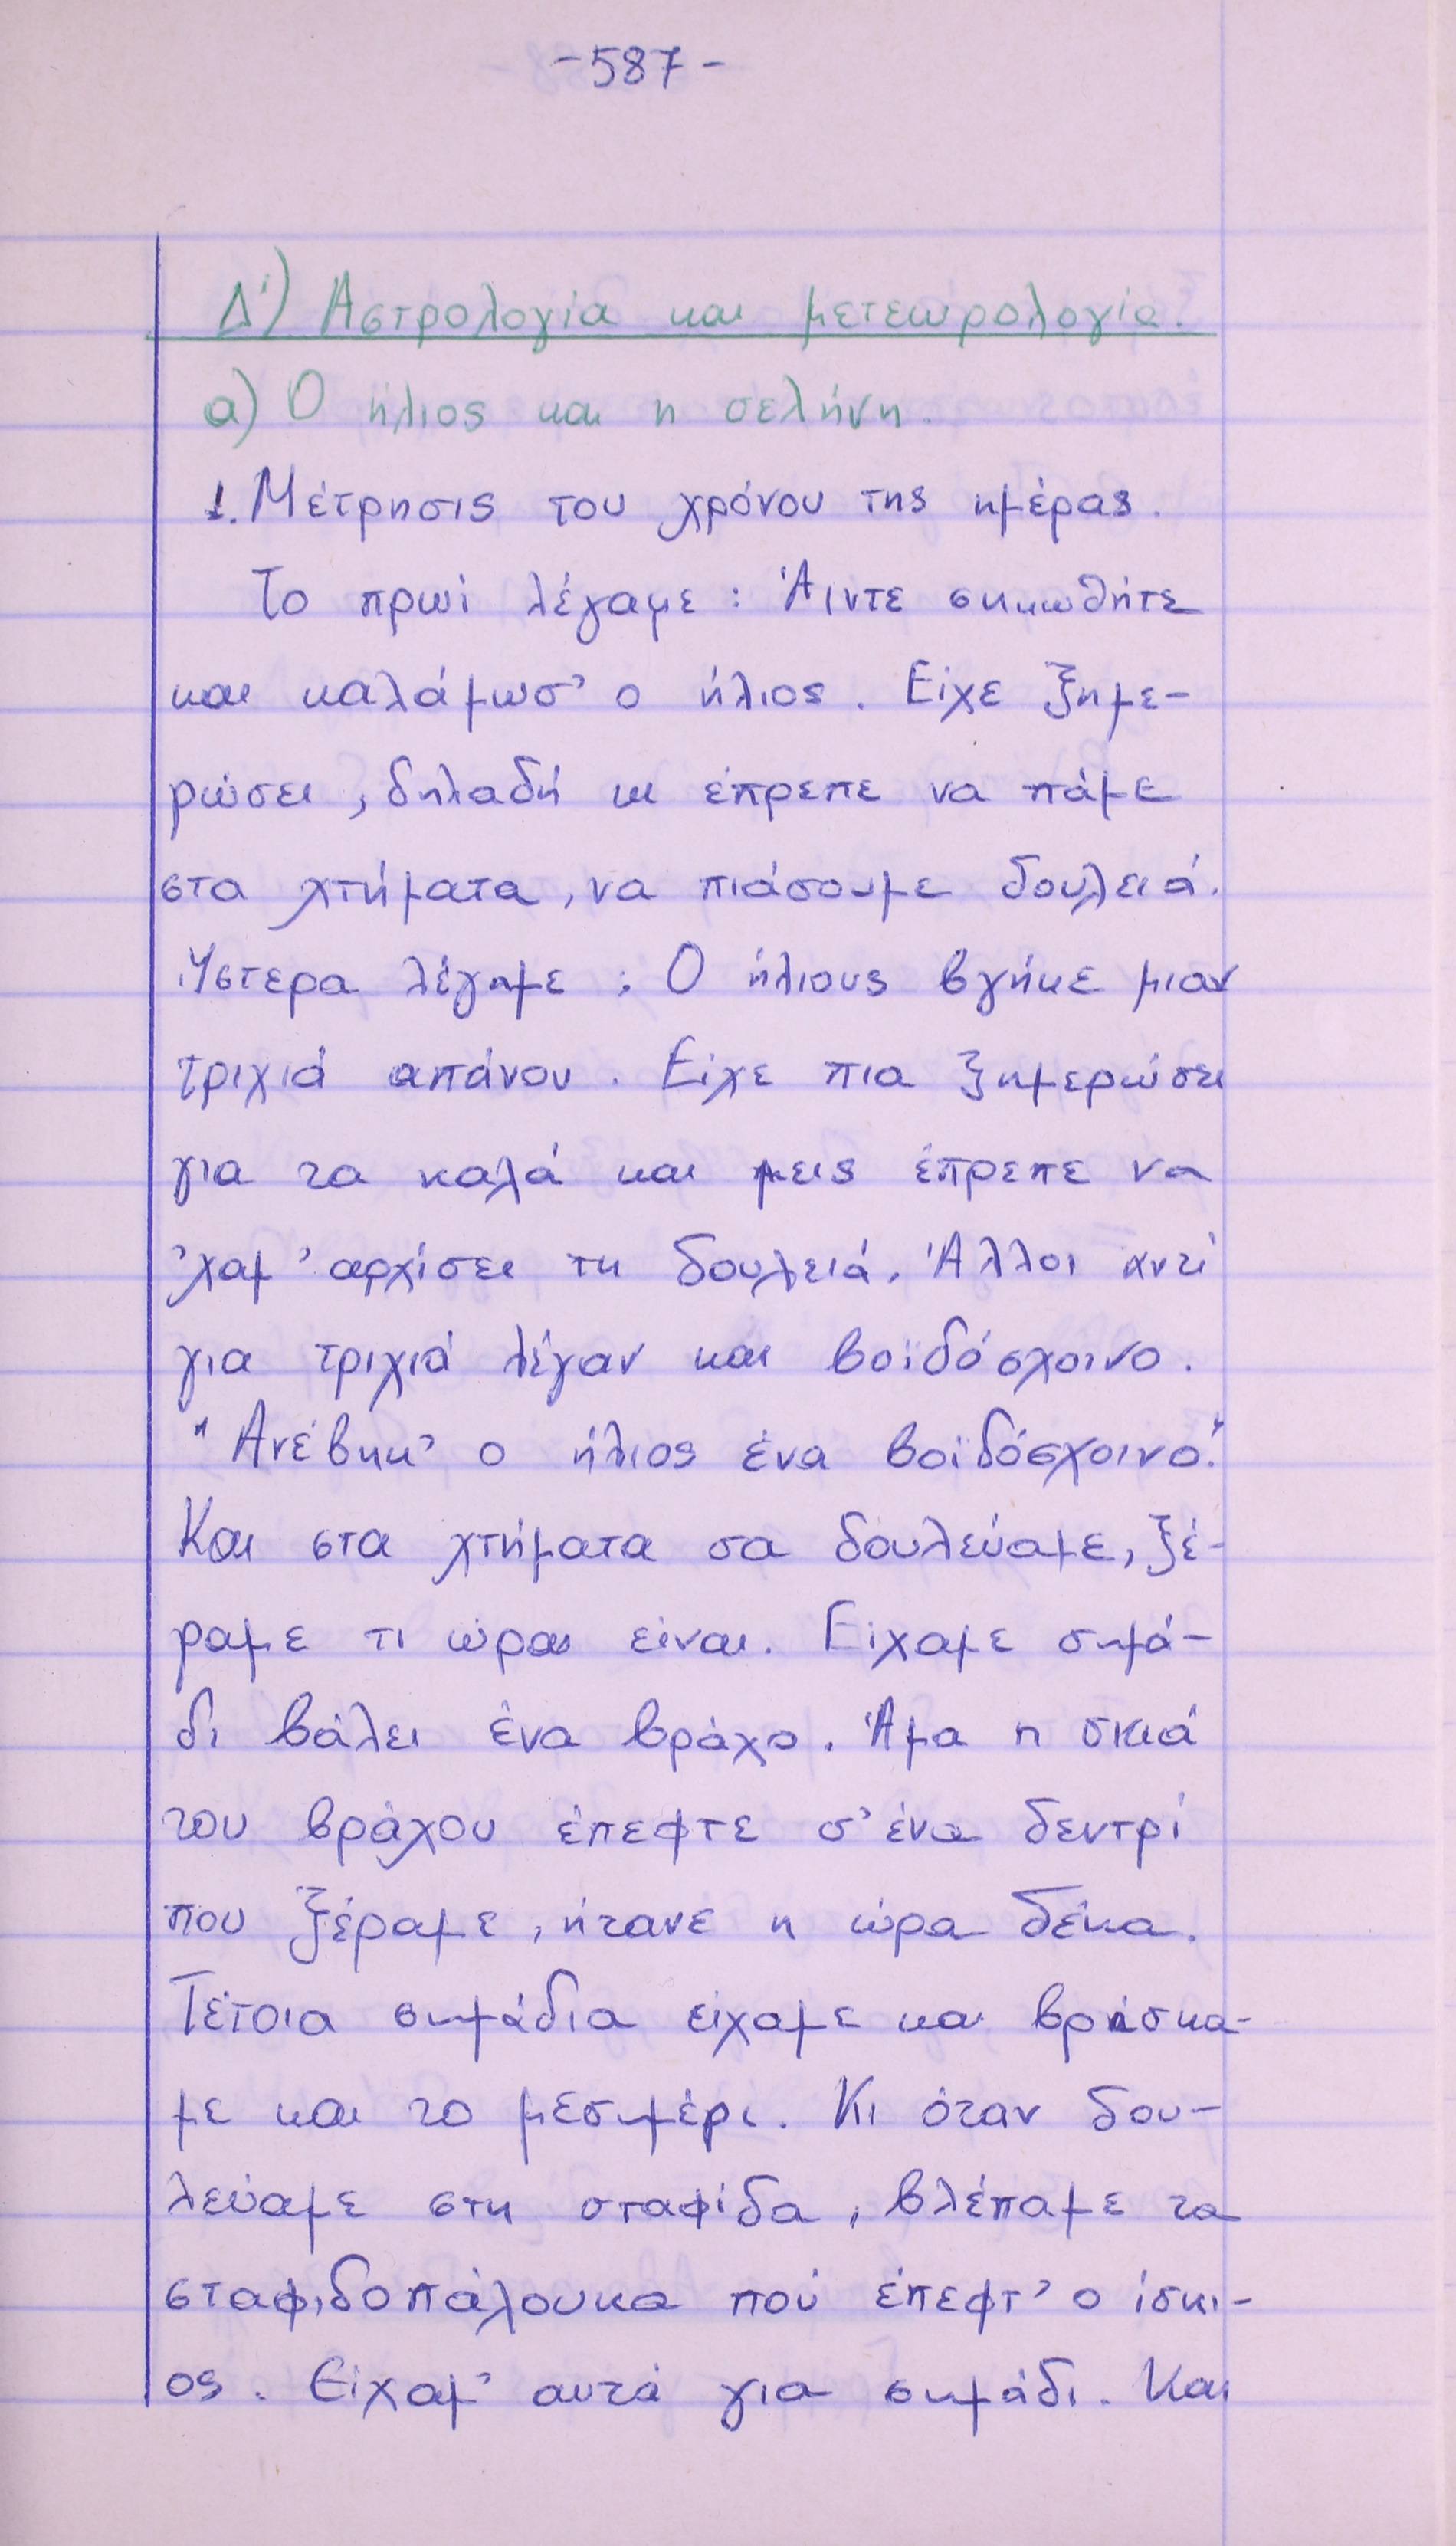 -587-
Δ') Αστρολογία και μετεωρολογία.
α) Ο ήλιος και η σελήνη.
1. Μέτρησις του χρόνου της ημέρας.
Το πρωί λέγαμε: Άιντε σηκωθήτε
και καλάμωσ' ο ήλιος. Είχε ξημε-
ρώσει, δηλαδή κι έπρεπε να πάμε
στα χτήματα, να πιάσουμε δουλειά.
Ύστερα λέγαμε: Ο ήλιους βγήκε μιαν
τριχιά απάνου. Είχε πια ξημερώσει
για τα καλά και μεις έπρεπε να
'χαμ' αρχίσει τη δουλειά. Άλλοι αντί
για τριχιά λέγαν και βοϊδόσχοινο.
"Ανέβηκ' ο ήλιος ένα βοϊδόσχοινο".
Και στα χτήματα σα δουλεύαμε, ξέ-
ραμε τι ώρα είναι. Είχαμε σημά-
δι βάλει ένα βράχο. Άμα η σκιά
του βράχου έπεφτε σ' ένα δεντρί
που ξέραμε, ήτανε η ώρα δέκα.
Τέτοια σημάδια είχαμε και βρίσκα-
με και το μεσημέρι. Κι όταν δου-
λεύαμε στη σταφίδα, βλέπαμε τα
σταφιδοπάλουκα πού έπεφτ' ο ίσκι-
ος. Είχαμ' αυτά για σημάδι. Και